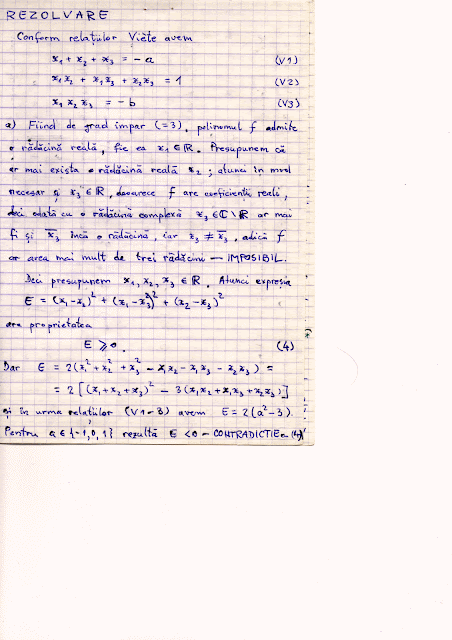 REZOLVARE
Conform relațiilor Viète avem
x₁ + x₂ + x₃ = - a (V1)
x₁x₂ + x₁x₃ + x₂x₃ = 1 (V2)
x₁ x₂ x₃ = - b (V3)
a) Fiind de grad impar (=3), polinomul f admite
o rădăcină reală, fie ea x₁ ∈ ℝ. Presupunem că
ar mai exista o rădăcină reală x₂ ; atunci în mod
necesar și x₃ ∈ ℝ, deoarece f are coeficienți reali,
deci odată cu o rădăcină complexă x₃ ∈ ℂ \ ℝ ar mai
fi și x̄₃ încă o rădăcină, iar x₃ ≠ x̄₃, adică f
ar avea mai mult de trei rădăcini — IMPOSIBIL.
Deci presupunem x₁, x₂, x₃ ∈ ℝ. Atunci expresia
E = (x₁-x₂)² + (x₁-x₃)² + (x₂-x₃)²
are proprietatea
E ⩾ 0. (4)
Dar E = 2(x₁² + x₂² + x₃² - x₁x₂ - x₁x₃ - x₂x₃) =
= 2 [(x₁+x₂+x₃)² - 3(x₁x₂+x₁x₃+x₂x₃)]
și în urma relațiilor (V1-3) avem E = 2(a²-3).
Pentru a ∈ {-1,0,1} rezultă E < 0 - CONTRADICȚIE